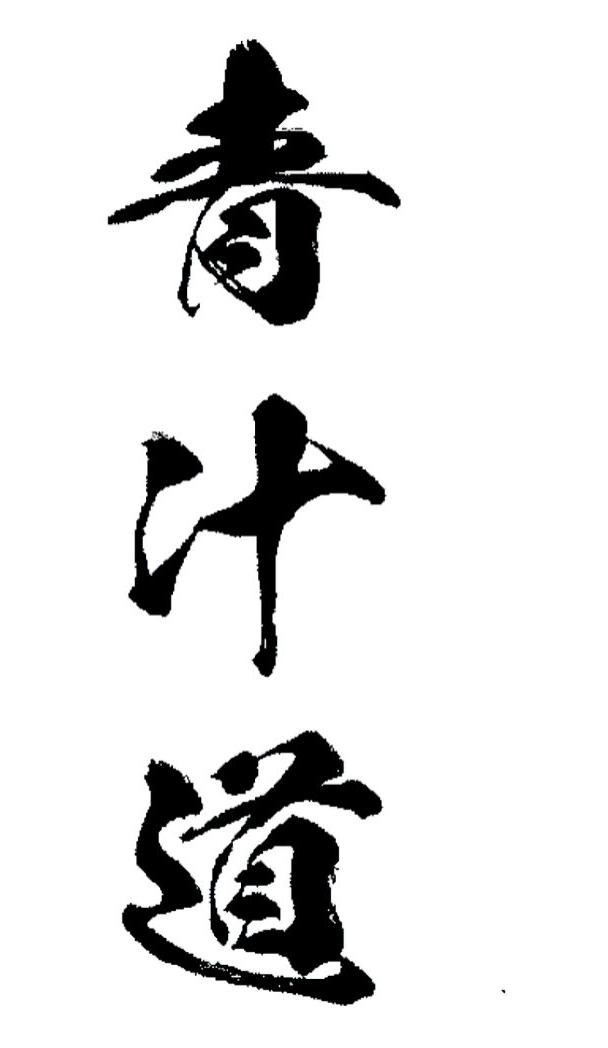 青汁道